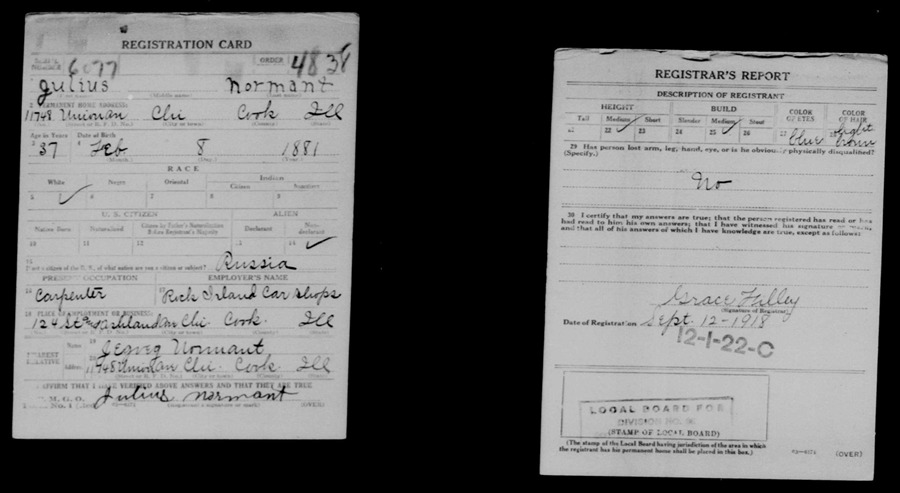 REGISTRATION CARD
SERIAL NUMBER 6077 ORDER 4838
Julius Normant
(First name) (Middle name) (Last name)
PERMANENT HOME ADDRESS:
11748 Union av Chi Cook Ill
(No.) (Street or R. F. D. No.) (City or town) (County) (State)
Age in Years Date of Birth
37 Feb 8 1881
(Month.) (Day.) (Year.)
RACE
White Negro Oriental Indian
Citizen Noncitizen
5 ✓ 6 7 8 9
U. S. CITIZEN ALIEN
Native Born Naturalized Citizen by Father's Naturalization Before Registrant's Majority Declarant Non-declarant
10 11 12 13 14 ✓
15
If not a citizen of the U. S., of what nation are you a citizen or subject? Russia
PRESENT OCCUPATION EMPLOYER'S NAME
16 Carpenter 17 Rock Island Car Shops
18 PLACE OF EMPLOYMENT OR BUSINESS:
124 St & Ashland av Chi Cook Ill
(No.) (Street or R. F. D. No.) (City or town) (County) (State)
NEAREST RELATIVE Name 19 Normant
Address 20 11748 Union av Chi Cook Ill
(No.) (Street or R. F. D. No.) (City or town) (County) (State)
I AFFIRM THAT I HAVE VERIFIED ABOVE ANSWERS AND THAT THEY ARE TRUE
P. M. G. O.
Form No. 1 (Red) Julius Normant
(Registrant's signature or mark) (OVER)
REGISTRAR'S REPORT
DESCRIPTION OF REGISTRANT
HEIGHT BUILD COLOR OF EYES COLOR OF HAIR
Tall Medium Short Slender Medium Stout
21 22 ✓ 23 24 25 ✓ 26 27 blue 28 light brown
29 Has person lost arm, leg, hand, eye, or is he obviously physically disqualified?
(Specify.)
No
30 I certify that my answers are true; that the person registered has read or has
had read to him his own answers; that I have witnessed his signature or mark,
and that all of his answers of which I have knowledge are true, except as follows:
Grace Filley
(Signature of Registrar)
Date of Registration Sept. 12-1918
12-1-22-C
LOCAL BOARD FOR
DIVISION NO.
(STAMP OF LOCAL BOARD)
(The stamp of the Local Board having jurisdiction of the area in which
the registrant has his permanent home shall be placed in this box.)
(OVER)